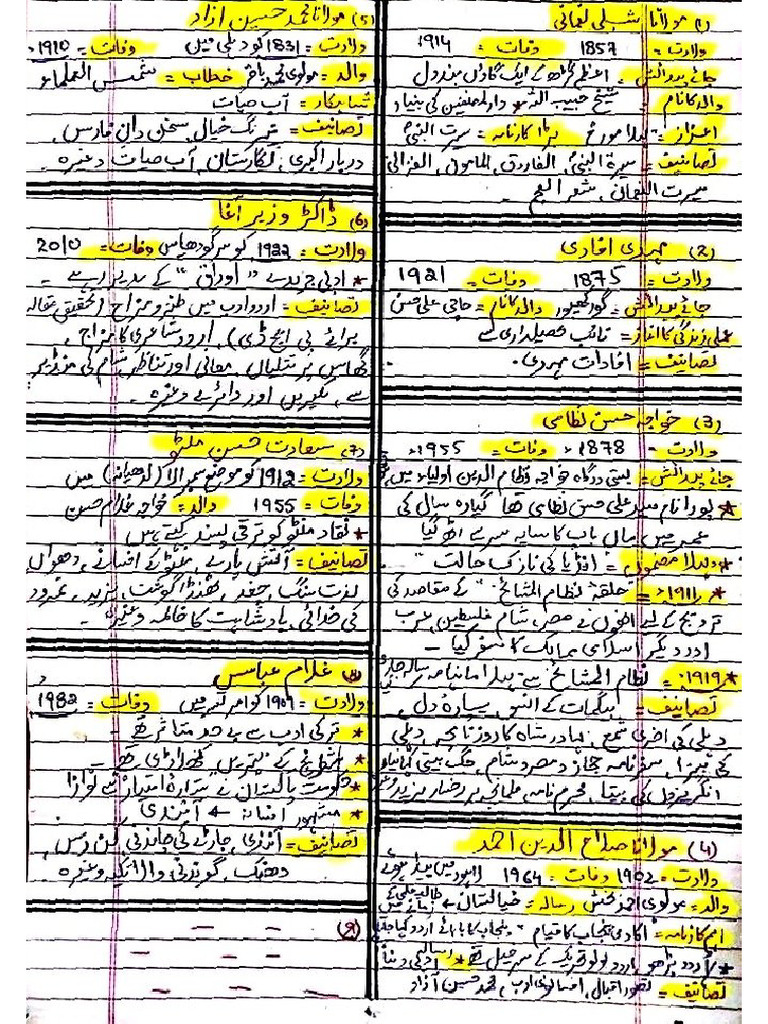 (1) مولانا شبلی نعمانی
ولادت = 1857 وفات = 1914
جائے پیدائش = اعظم گڑھ کے ایک گاؤں بندول
والد کا نام = شیخ حبیب اللہ دارالمصنفین کی بنیاد
اعزاز = پہلا مورخ بڑا کارنامہ = سیرت النبیؐ
تصانیف = سیرۃ النبیؐ، الفاروق، المامون، الغزالی
سیرت النعمان، شعر العجم۔
(2) مہدی افادی
ولادت = 1875 وفات = 1921
جائے پیدائش = گورکھپور والد کا نام = حاجی علی حسن
عملی زندگی کا آغاز = نائب تحصیلداری سے
تصانیف = افادات مہدی۔
(3) خواجہ حسن نظامی
ولادت = 1878ء وفات = 1955ء
جائے پیدائش = بستی درگاہ خواجہ نظام الدین اولیاء میں
* پورا نام سید علی حسن نظامی تھا گیارہ سال کی
عمر میں ماں باپ کا سایہ سر سے اٹھ گیا
* پہلا مضمون = انڈیا کی نازک حالت"
* 1911ء = حلقۂ نظام المشائخ" کے مقاصد کی
ترویج کے لیے انھوں نے مصر، شام، فلسطین، عرب
اور دیگر اسلامی ممالک کا سفر کیا۔
* 1919ء = نظام المشائخ سے پہلا ماہنامہ رسالہ جاری
تصانیف = بیگمات کے آنسو، سیپارۂ دل،
دہلی کی آخری شمع، بہادر شاہ کا روزنامچہ، دہلی
کی، سفرنامہ حجاز و مصر و شام، جگ بیتی کہانیاں
انگریزوں کی بپتا، محرم نامہ، طمانچہ بر رخسار یزید وغیرہ
(4) مولانا صلاح الدین احمد
ولادت = 1902 وفات = 1964 لاہور میں پیدا ہوئے
والد = مولوی احمد بخش رسالہ = خیالستان ← طالب علمی کے زمانے میں
اہم کارنامہ = اکادمی پنجاب کا قیام "پنجاب کا بابائے اردو کہا جاتا
* اردو پڑھو، اردو بولو تحریک کے سرخیل تھے * رسالہ ادبی دنیا
تصانیف = تصور اقبال، افسانوی ادب، محمد حسین آزاد
(5) مولانا محمد حسین آزاد
ولادت = 1831 کو دہلی میں وفات = 1910ء
والد = مولوی محمد باقر خطاب = شمس العلماء
شاہکار = آب حیات
تصانیف = نیرنگ خیال، سخن دان فارس،
دربار اکبری، نگارستان، آب حیات وغیرہ۔
(6) ڈاکٹر وزیر آغا
ولادت = 1922 کو سرگودھا میں وفات = 2010
* ادبی جریدے "اوراق" کے مدیر رہے۔
تصانیف = اردو ادب میں طنز و مزاح (تحقیقی مقالہ
برائے پی ایچ ڈی)، اردو شاعری کا مزاج،
گھاس پر تتلیاں، معانی اور تناظر، شام کی منڈیر
سے، لکیریں اور دائرے وغیرہ۔
(7) سعادت حسن منٹو
ولادت = 1912 کو موضع سمبرالا (لدھیانہ) میں
وفات = 1955 والد = خواجہ غلام حسن
* نقاد منٹو کو ترقی پسند کہتے ہیں
تصانیف = آتش پارے، منٹو کے افسانے، دھواں
لذت سنگ، چغد، ٹھنڈا گوشت، یزید، نمرود
کی خدائی، بادشاہت کا خاتمہ وغیرہ۔
غلام عباس
ولادت = 1909 کو امرتسر میں وفات = 1982ء
* ترکی ادب سے بے حد متاثر تھے
* کے بہترین کھلاڑی تھے۔
* حکومت پاکستان نے ستارۂ امتیاز سے نوازا
* مشہور افسانہ ← آنندی
تصانیف = آنندی، جاڑے کی چاندنی، کن رس،
دھنک، گوندنی والا تکیہ وغیرہ
(9)